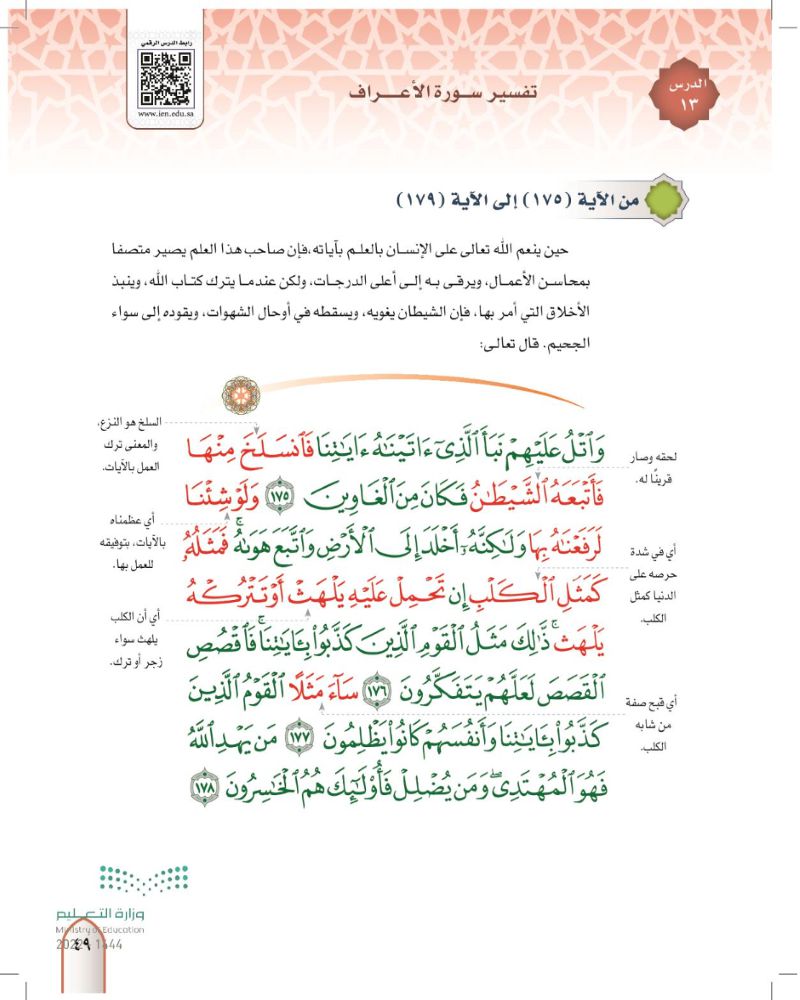 رابط الدرس الرقمي
www.ien.edu.sa
الدرس
١٣
تفسير سورة الأعراف
من الآية (١٧٥) إلى الآية (١٧٩)
حين ينعم الله تعالى على الإنسان بالعلم بآياته،فإن صاحب هذا العلم يصير متصفا
بمحاسن الأعمال، ويرقى به إلى أعلى الدرجات، ولكن عندما يترك كتاب الله، وينبذ
الأخلاق التي أمر بها، فإن الشيطان يغويه، ويسقطه في أوحال الشهوات، ويقوده إلى سواء
الجحيم. قال تعالى:
وَٱتْلُ عَلَيْهِمْ نَبَأَ ٱلَّذِىٓ ءَاتَيْنَٰهُ ءَايَٰتِنَا فَٱنسَلَخَ مِنْهَا
فَأَتْبَعَهُ ٱلشَّيْطَٰنُ فَكَانَ مِنَ ٱلْغَاوِينَ ١٧٥ وَلَوْ شِئْنَا
لَرَفَعْنَٰهُ بِهَا وَلَٰكِنَّهُۥٓ أَخْلَدَ إِلَى ٱلْأَرْضِ وَٱتَّبَعَ هَوَىٰهُ ۚ فَمَثَلُهُۥ
كَمَثَلِ ٱلْكَلْبِ إِن تَحْمِلْ عَلَيْهِ يَلْهَثْ أَوْ تَتْرُكْهُ
يَلْهَث ۚ ذَّٰلِكَ مَثَلُ ٱلْقَوْمِ ٱلَّذِينَ كَذَّبُوا۟ بِـَٔايَٰتِنَا ۚ فَٱقْصُصِ
ٱلْقَصَصَ لَعَلَّهُمْ يَتَفَكَّرُونَ ١٧٦ سَآءَ مَثَلًا ٱلْقَوْمُ ٱلَّذِينَ
كَذَّبُوا۟ بِـَٔايَٰتِنَا وَأَنفُسَهُمْ كَانُوا۟ يَظْلِمُونَ ١٧٧ مَن يَهْدِ ٱللَّهُ
فَهُوَ ٱلْمُهْتَدِى ۖ وَمَن يُضْلِلْ فَأُو۟لَٰٓئِكَ هُمُ ٱلْخَٰسِرُونَ ١٧٨
لحقه وصار
قرينًا له.
أي في شدة
حرصه على
الدنيا كمثل
الكلب.
أي قبح صفة
من شابه
الكلب.
السلخ هو النزع،
والمعنى ترك
العمل بالآيات.
أي عظمناه
بالآيات، بتوفيقه
للعمل بها.
أي أن الكلب
يلهث سواء
زجر أو ترك.
وزارة التعليم
Ministry of Education
٤٩
1444